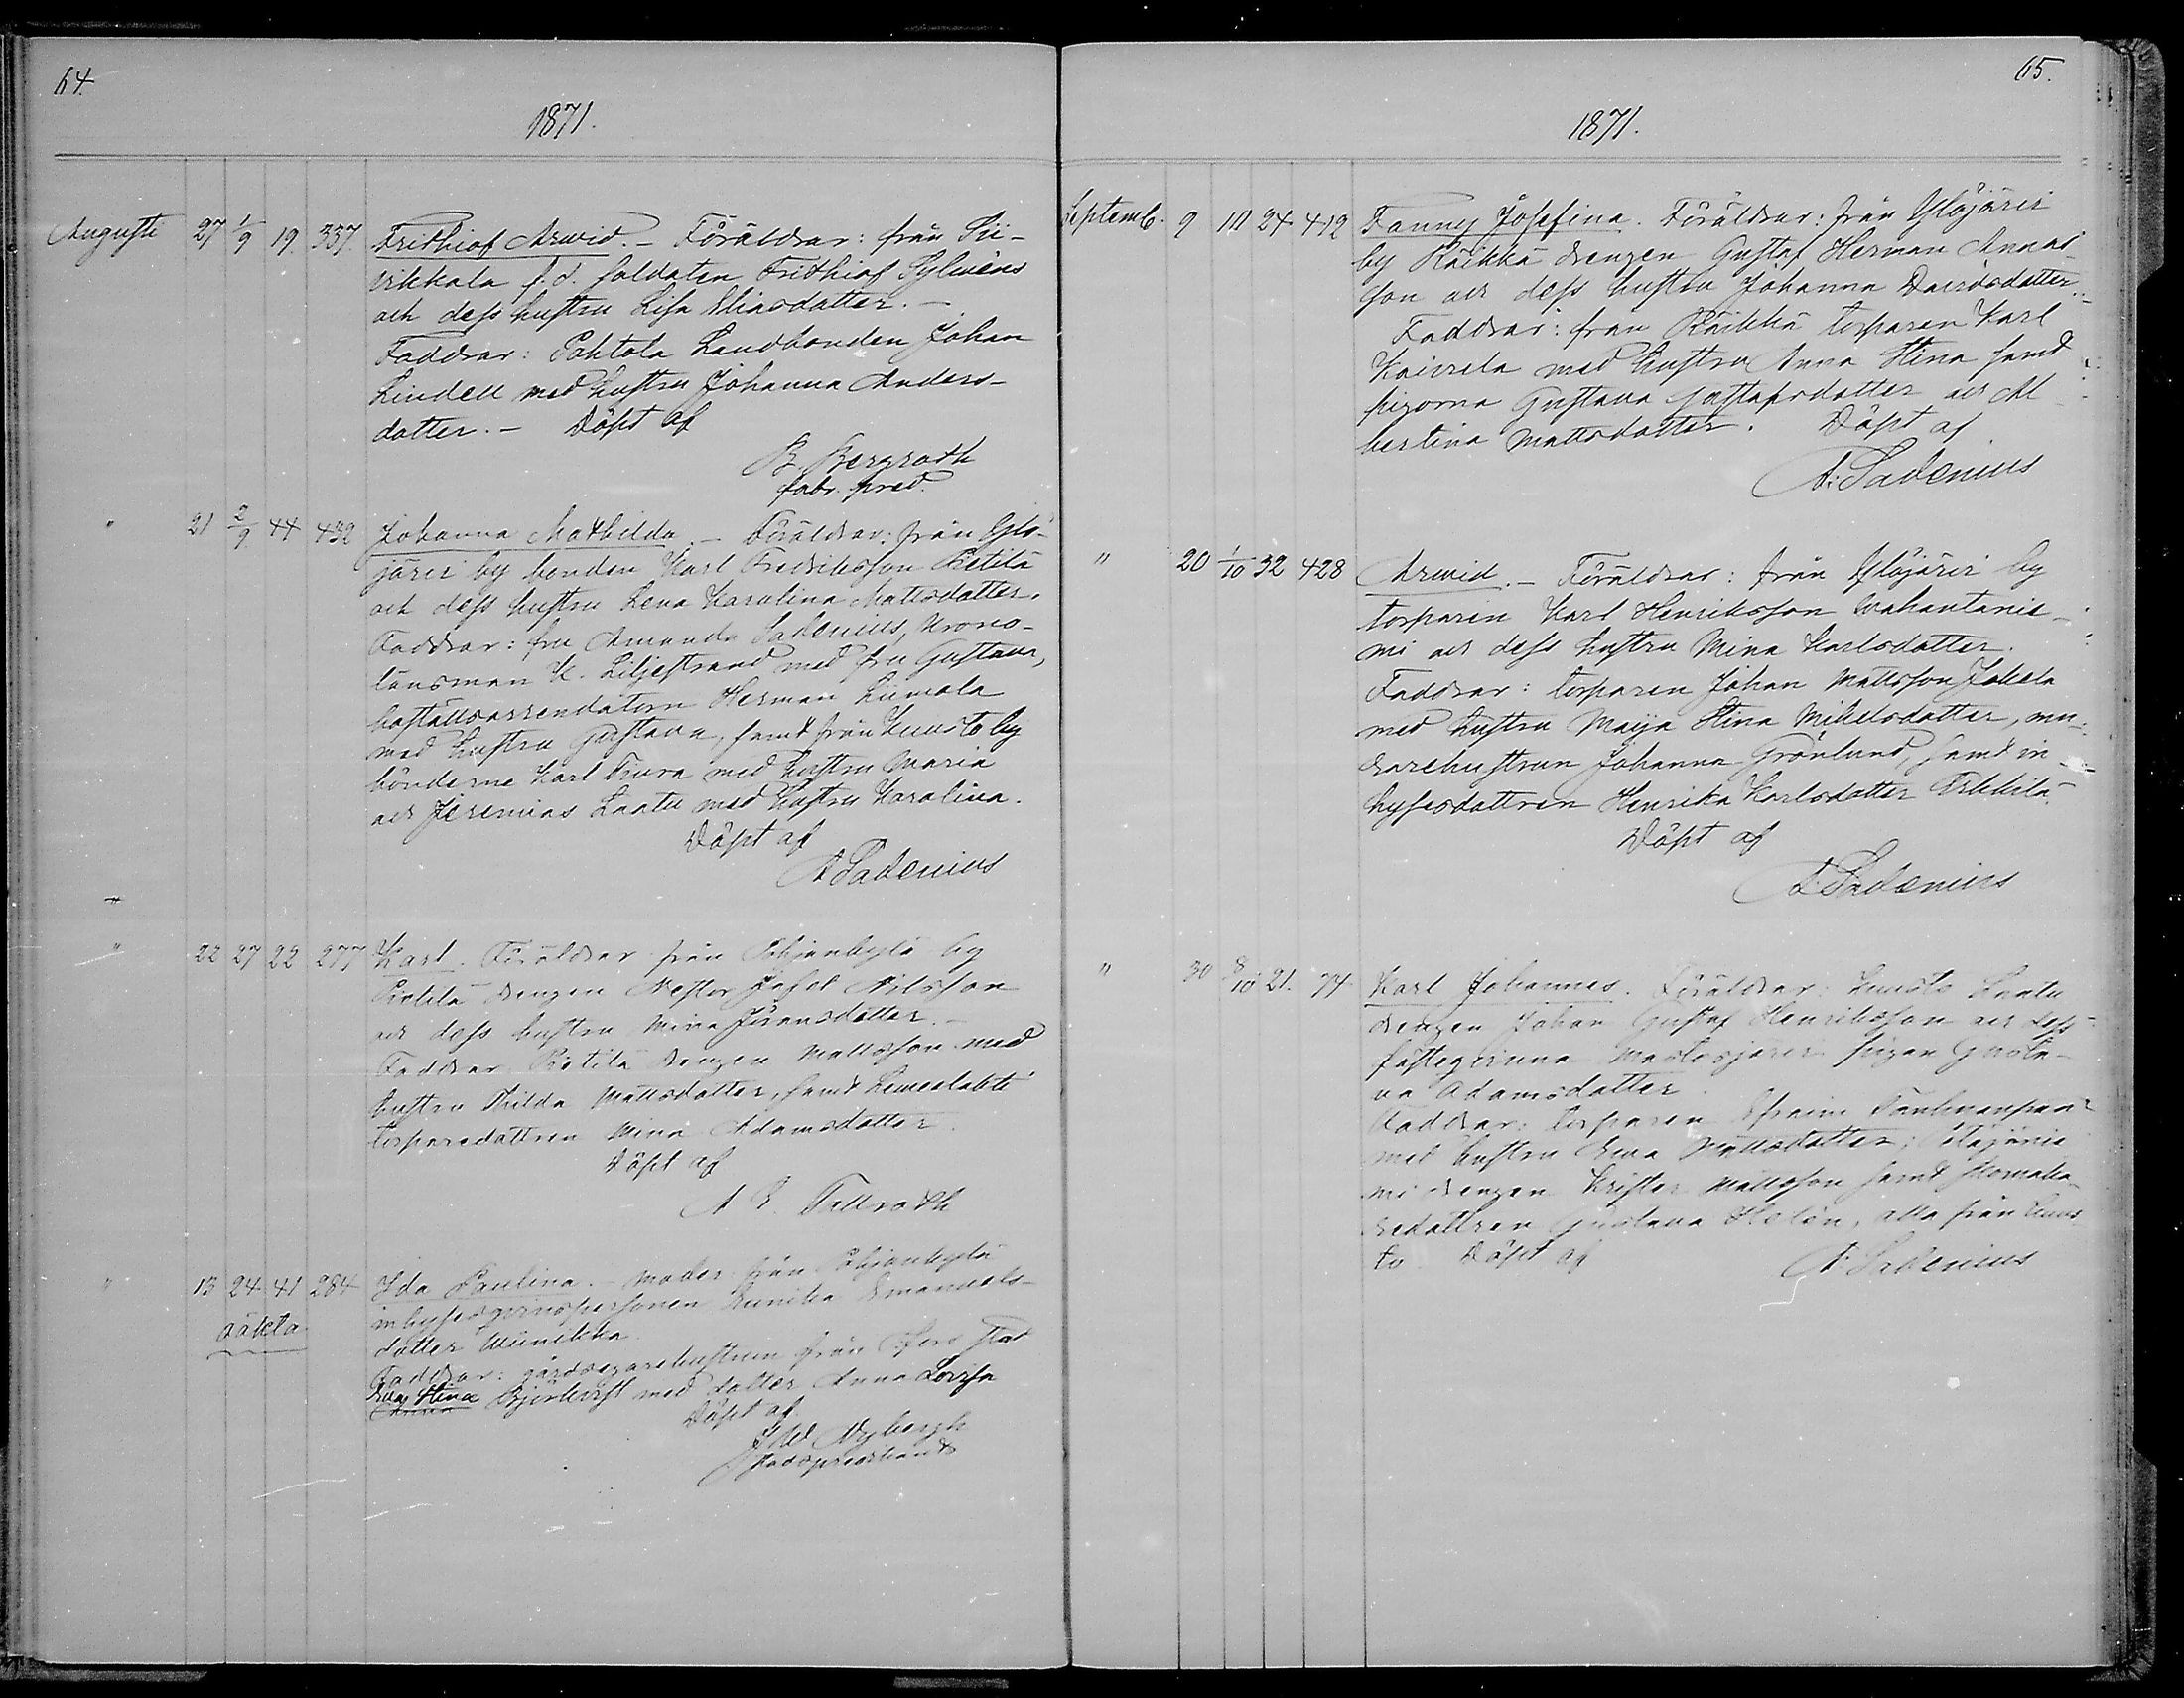 64.
1871.
Augusti 27 1/9 19. 337. Frithiof Arwid. – Föräldrar: från Sii-
vikkala f.d. soldaten Frithiof Sylvéns
och dess hustru Lisa Eliasdatter. –
Faddrar: Pohtola Landbonden Johan
Lindell med hustru Johanna Anders-
datter. – Döpt af
B. Bergroth
fabr. pred.
" 21 2/9 44 432 Johanna Mathilda. – Föräldrar: från Ylö-
järvi by bonden Karl Fredriksson Pietilä
och dess hustru Lena Karolina Mattsdatter.
Faddrar: fru Amanda Sadenius, krono-
länsman K. Liljestrand med fru Gustava,
boställsarrendatorn Herman Liimola
med hustru Gustava, samt från Kuusto by
bönderne Karl med hustru Maria
och Jeremias Laatu med hustru Karolina.
Döpt af
A Sadenius
"
" 22 27 22 277 Karl. Föräldrar från Pohjankylä by
Pietilä drengen Nestor Josef Nilsson
och dess hustru Mina Göransdatter. –
Faddrar Pietilä drengen Mattsson med
hustru Thilda Mattsdatter, samt
torparedattren Mina Adamsdatter.
Döpt af
A E. Tallroth
" 13 24 41 284 Ida Paulina. – Moder från Pohjankylä
inhysesqvinspersonen Eunika Emanuels-
datter
oäkta
Faddrar: gårdsegarehustrun från stad
Eva Stina Björkqvist med datter Anna Lovisa
Döpt af
J W Nybergh
65.
1871.
Septemb. 9 10 24 412 Fanny Josefina. Föräldrar: från Ylöjärvi
by Räikkä drengen Gustaf Herman Annas
son och dess hustru Johanna Davidsdatter. –
Faddrar: från Räikkä torparen Karl
Kaivela med hustru Anna Stina samt
pigorna Gustava Gustafsdatter och Al
bertina Mattsdatter. Döpt af
A: Sadenius
" 20 1/10 32 428 Arwid. – Föräldrar: från Ylöjärvi by
torparen Karl Henriksson Wahantanie-
mi och dess hustru Mina Karlsdatter.
Faddrar: torparen Johan Mattsson Jokela
med hustru Maija Stina Mikelsdatter, mu-
rarehustrun Johanna Grönlund, samt in-
hysesdattren Henrika Karlsdatter Erkkilä.
Döpt af
A. Sadenius
" 30 8/10 21. 74 Karl Johannes. Föräldrar: Kuusto Laatu
drengen Johan Gustaf Henriksson och dess
fästeqvinna pigan Gusta-
va Adamsdatter.
Faddrar: torparen Efraim
med hustru Eva Mattsdatter;
mi drengen Krister Mattsson samt skomaka-
redattren Gustava Helén, alla från Kuus
to. Döpt af
A: Sadenius